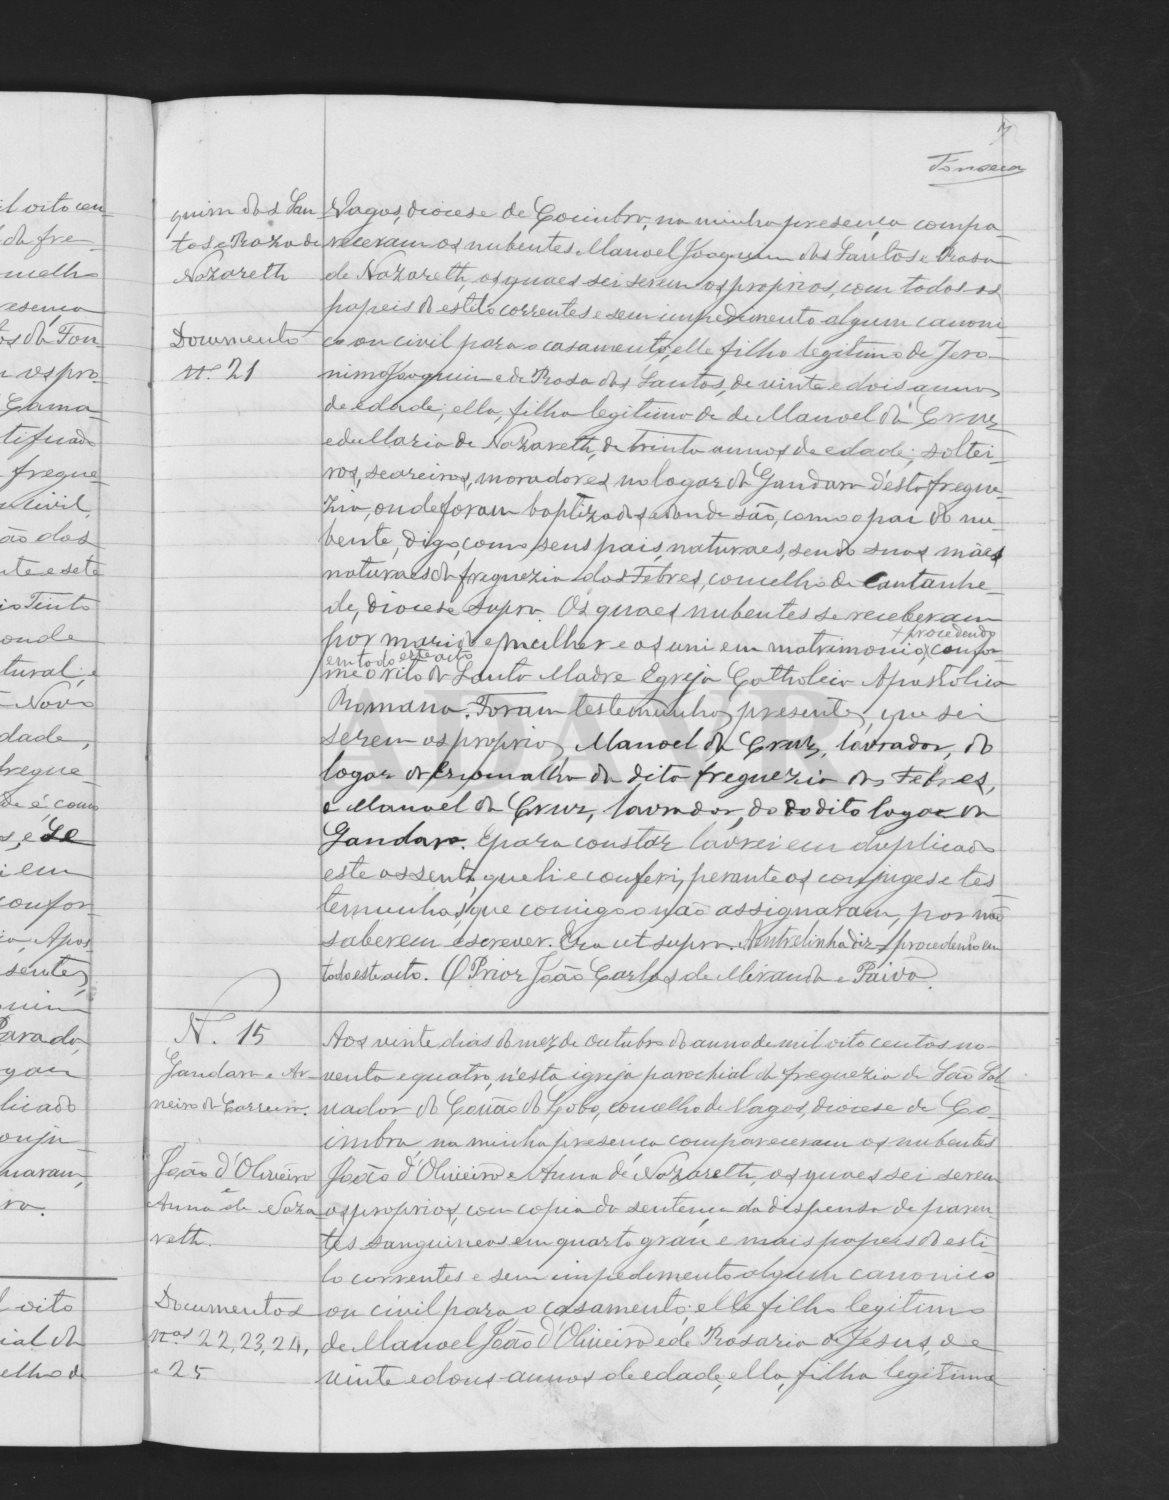 7
Fonseca
quim dos San-
tos e Roza de
Nazareth
Documento
nº 21
Vagos, diocese de Coimbra, na minha presença compa-
receram os nubentes Manoel Joaquim dos Santos e Rosa
de Nazareth, os quaes sei serem os proprios, com todos os
papeis do estilo correntes e sem impedimento algum canoni-
co ou civil para o casamento, elle filho legitimo de Jero-
nimo Joaquim e de Rosa dos Santos, de vinte e dois annos
de edade; ella, filha legitima de de Manoel da Cruz
e de Maria de Nazareth, de trinta annos de edade; soltei-
ros, seareiros, moradores no logar da Gandara d'esta fregue-
zia, onde foram baptizados e donde são, como o pai do nu-
bente, digo, como seus pais, naturaes, sendo suas mães
naturaes da freguezia dos Febres, concelho de Cantanhe-
de, diocese supra. Os quaes nubentes se receberam
+ procedendo
por marido e mulher e os uni em matrimonio, confor-
em todo este acto
me o rito da Santa Madre Egreja Catholica Apostolica
Romana. Foram testemunhas presentes, que sei
serem os proprios, Manoel da Cruz, lavrador, do
logar da da dita freguezia dos Febres,
e Manoel da Cruz, lavrador, do do dito logar da
Gandara. E para constar lavrei em duplicado
este assento, que li e conferi, perante os conjuges e tes-
temunhas, que comigo o não assignaram, por não
saberem escrever. Era ut supra. A entrelinha diz = procedendo em
todo este acto. O Prior João Carlos de Miranda e Paiva.
N. 15
Gandara e Ar-
neiro da Barreira.
João d'Oliveira
e
Anna de Naza-
reth.
Documentos
nos 22, 23, 24,
e 25
Aos vinte dias do mez de outubro do anno de mil oito centos no-
venta e quatro, n'esta igreja parochial da freguezia de São Sal-
vador do Covão do Lobo, concelho de Vagos, diocese de Co-
imbra, na minha presença compareceram os nubentes
João d'Oliveira e Anna de Nazareth, os quaes sei serem
os proprios, com copia da sentença da dispensa de paren-
tes sanguineos em quarto gráu e mais papeis do esti-
lo correntes e sem impedimento algum canonico
ou civil para o casamento; elle filho legitimo
de Manoel João d'Oliveira e de Rosaria de Jesus, de
vinte e dous annos de edade, ella, filha legitima